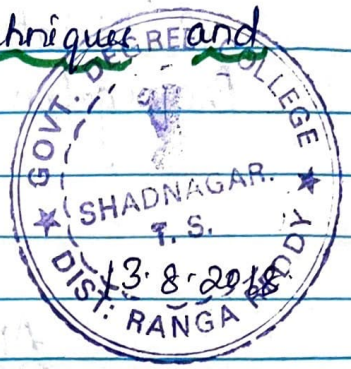 chniques and
GOVT. DEGREE COLLEGE
SHADNAGAR.
T. S.
13.8.2018
DIST. RANGA REDDY